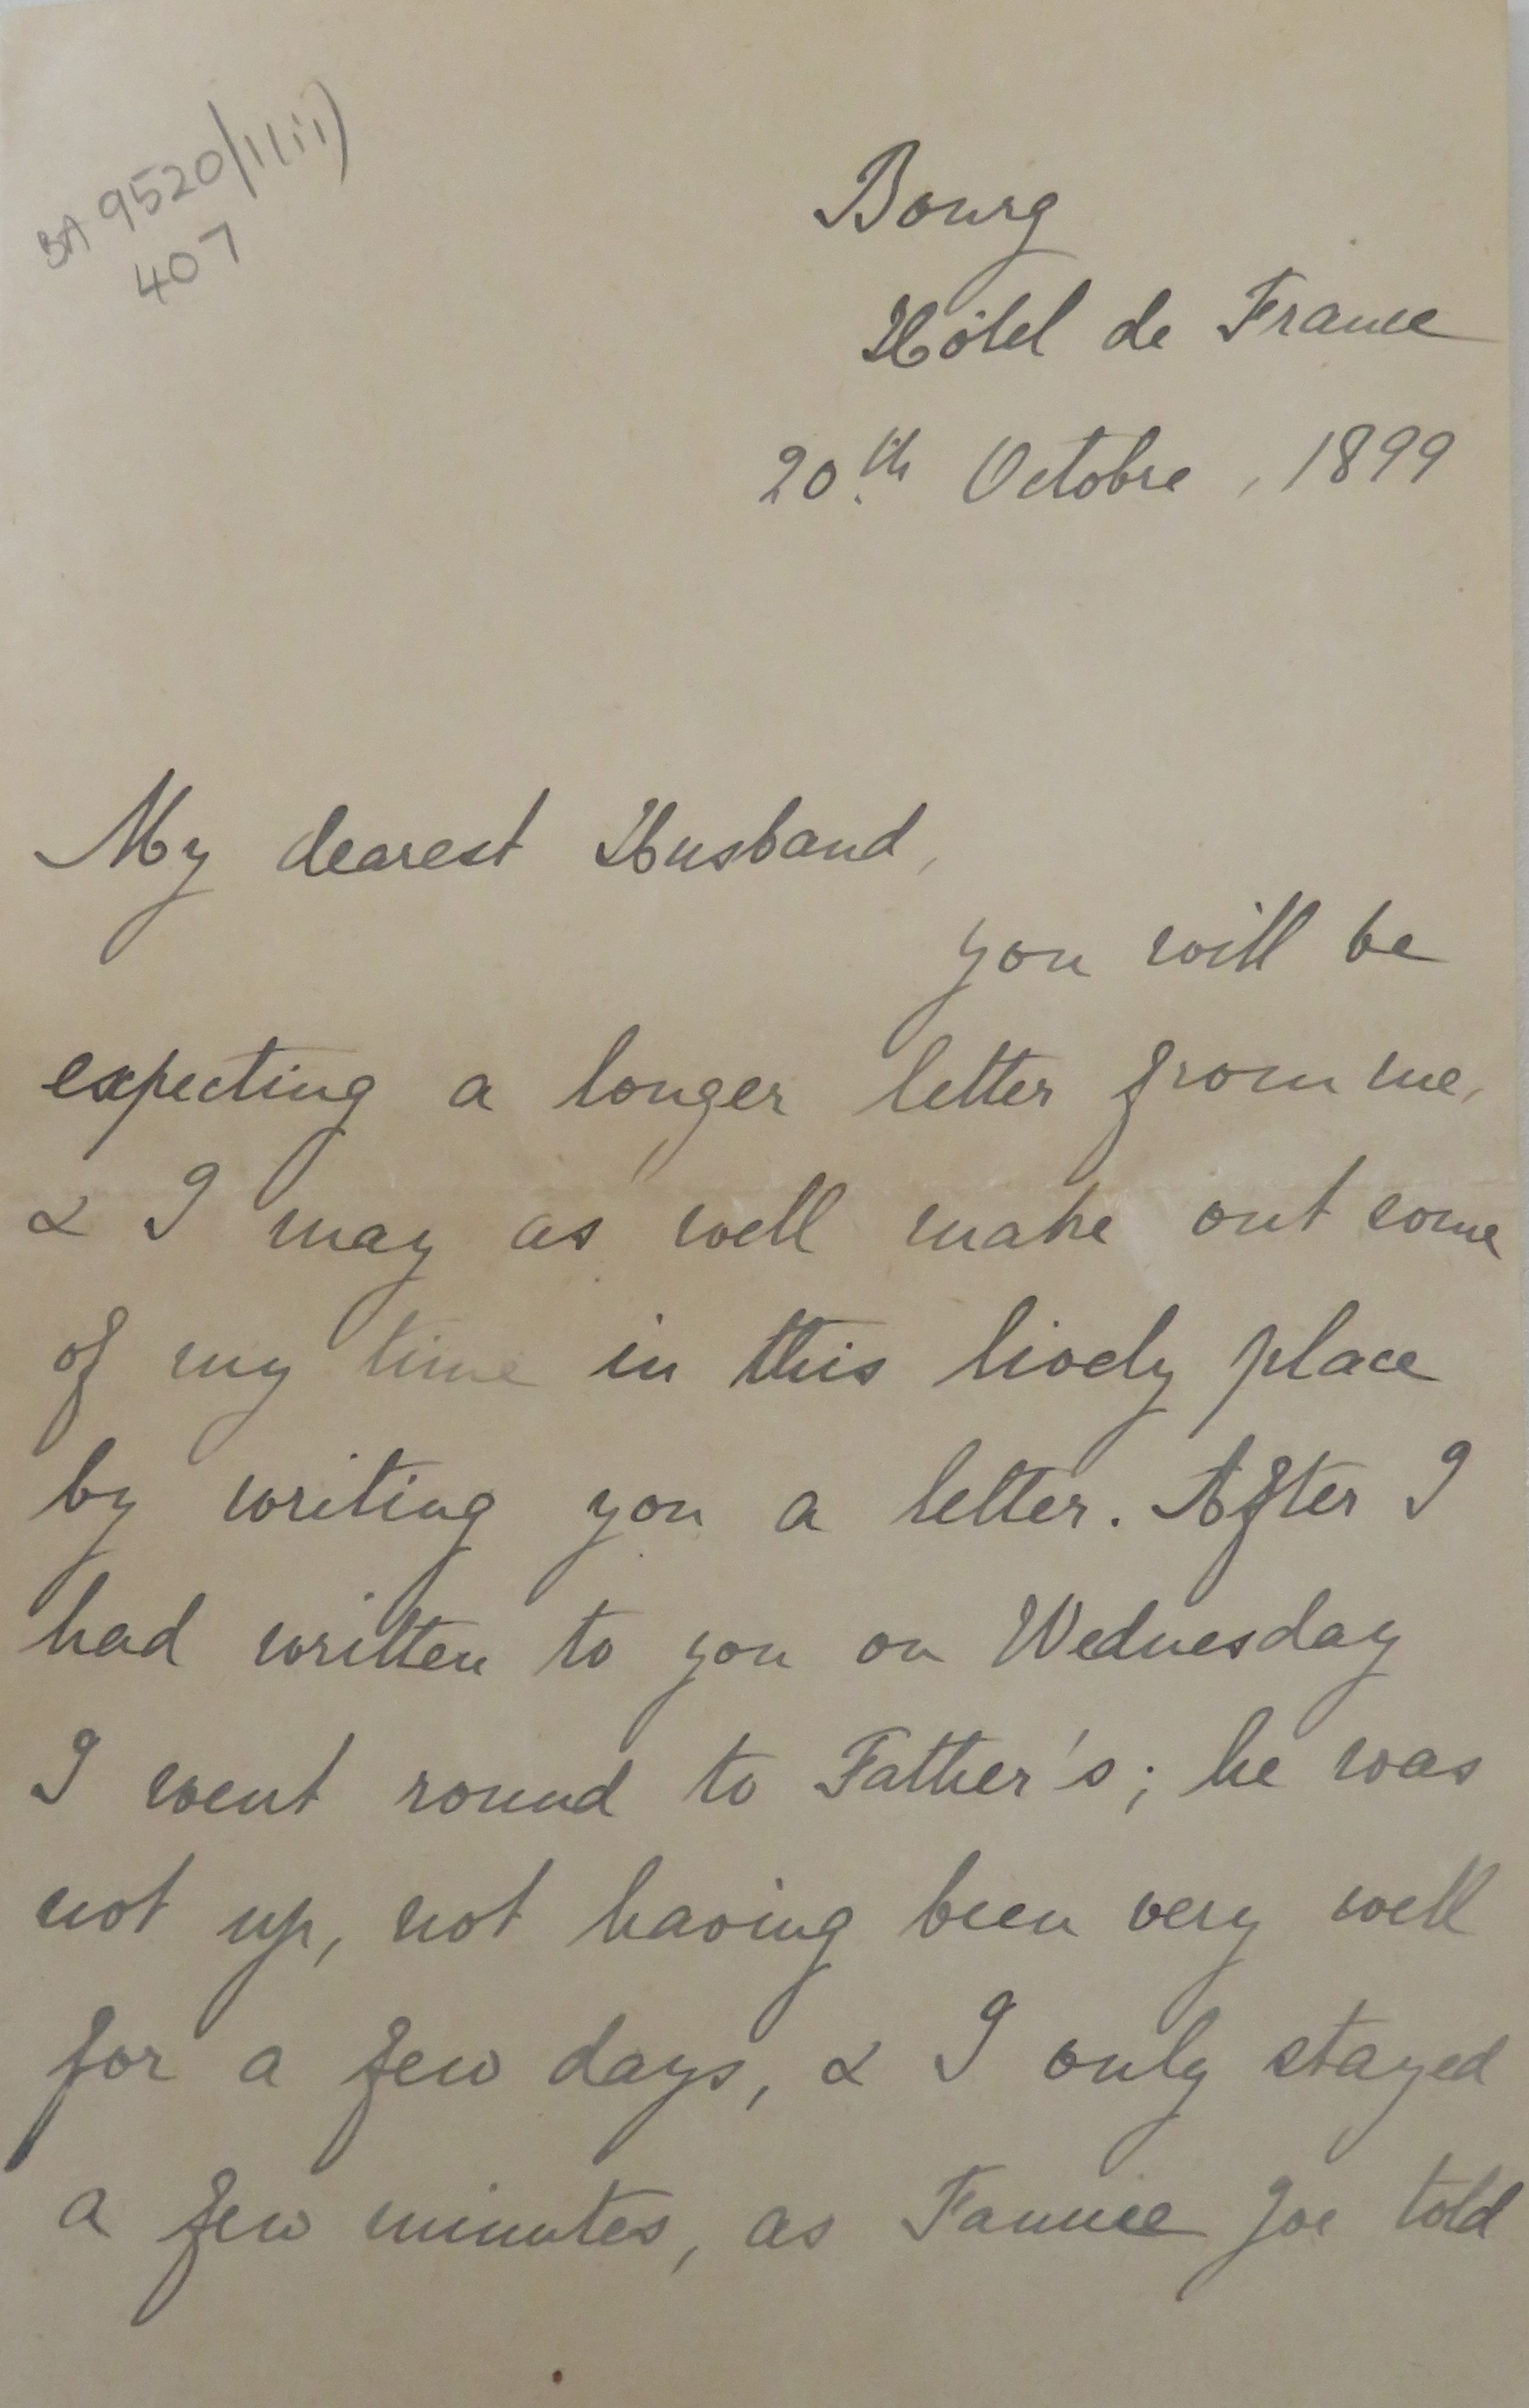 BA 9520/1(ii)
407
Bourg
Hôtel de France
20th Octobre, 1899
My dearest Husband,
you will be
expecting a longer letter from me,
& I may as well make out some
of my time in this lively place
by writing you a letter. After I
had written to you on Wednesday
I went round to Father's; he was
not up, not having been very well
for a few days, & I only stayed
a few minutes, as Fannie Joe told